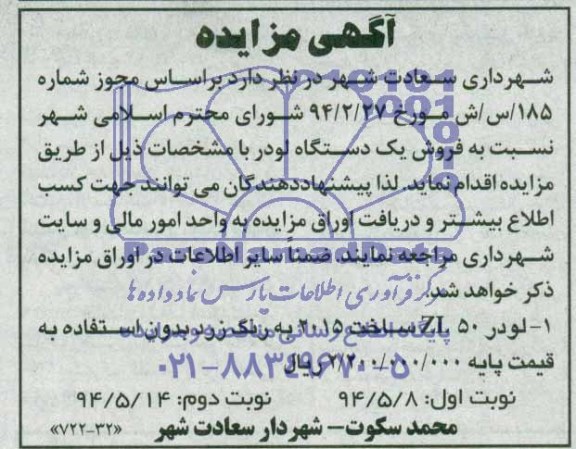 آگهی مزایده
شهرداری سعادت شهر در نظر دارد براساس مجوز شماره
۱۸۵/س/ش مورخ ۹۴/۲/۲۷ شورای محترم اسلامی شهر
نسبت به فروش یک دستگاه لودر با مشخصات ذیل از طریق
مزایده اقدام نماید. لذا پیشنهاددهندگان می توانند جهت کسب
اطلاع بیشتر و دریافت اوراق مزایده به واحد امور مالی و سایت
ParsNamadData
شهرداری مراجعه نمایند. ضمناً سایر اطلاعات در اوراق مزایده
ذکر خواهد شد.
مرکز فرآوری اطلاعات پارس نماد داده ها
۱- لودر ZL ۵۰ ساخت ۲۰۱۵ به رنگ زرد بدون استفاده به
پایگاه اطلاع رسانی مناقصه و مزایده
قیمت پایه ۲/۲۰۰/۰۰۰/۰۰۰ ریال
۰۲۱-۸۸۳۴۹۶۷۰-۵
نوبت اول: ۹۴/۵/۸ نوبت دوم: ۹۴/۵/۱۴
محمد سکوت- شهردار سعادت شهر «۷۲۲-۳۲»